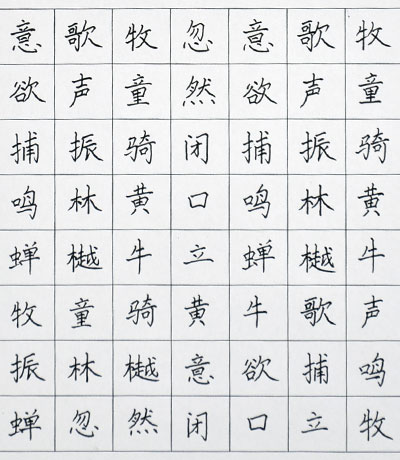 意歌牧忽意歌牧
欲声童然欲声童
捕振骑闭捕振骑
鸣林黄口鸣林黄
蝉樾牛立蝉樾牛
牧童骑黄牛歌声
振林樾意欲捕鸣
蝉忽然闭口立牧